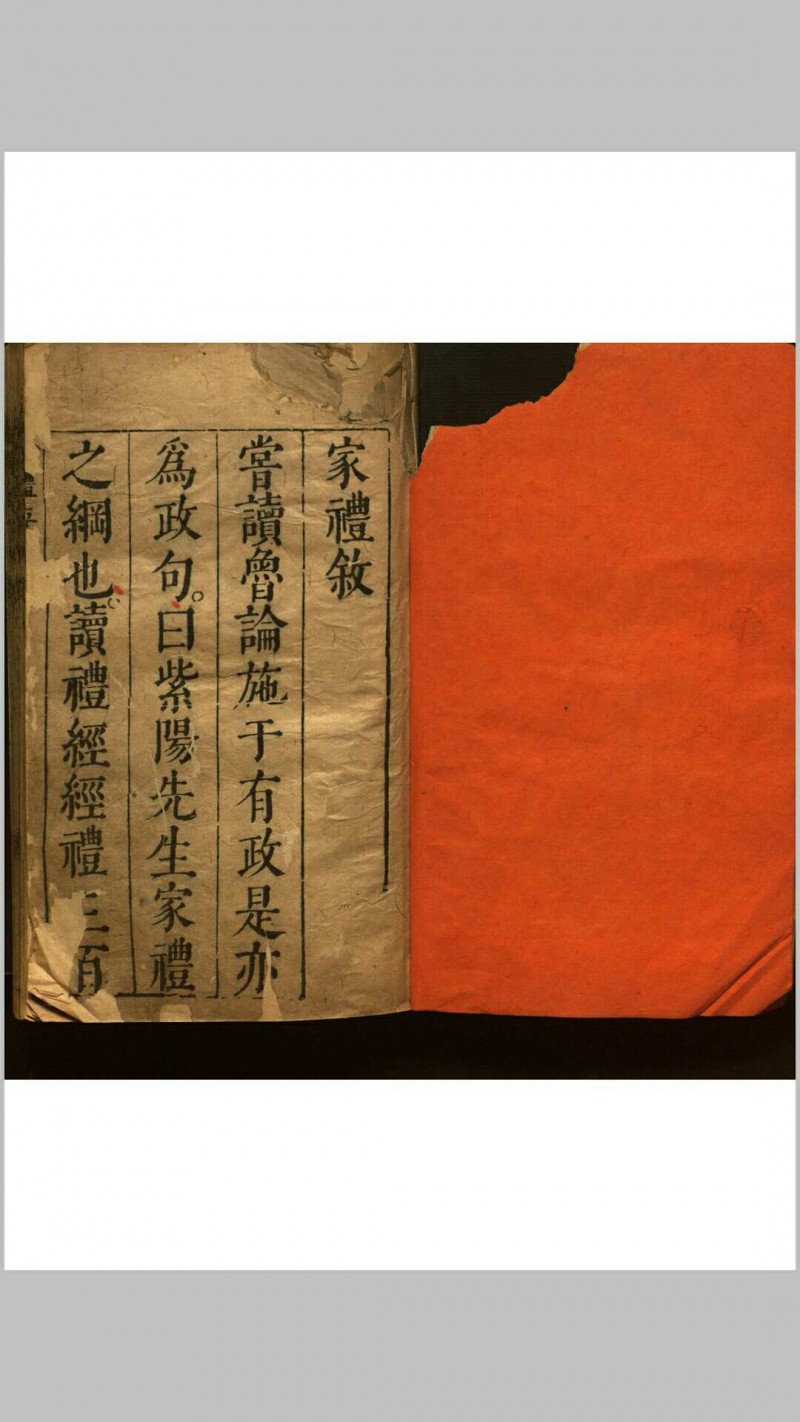 家禮敘
嘗讀魯論施于有政是亦
為政句。曰紫陽先生家禮
之綱也。讀禮經經禮三百